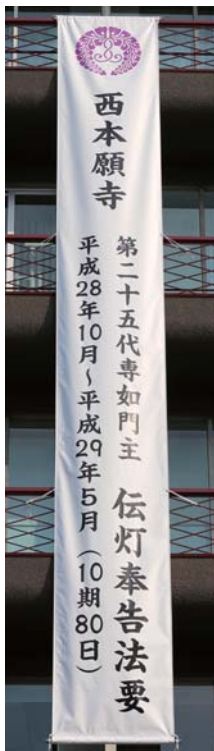 西本願寺
第二十五代専如門主 伝灯奉告法要
平成28年10月～平成29年5月（10期80日）